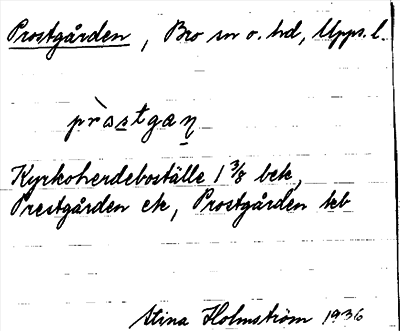 Prostgården, Bro sn o. hd, Upps. l.
pròstgaṇ
Kyrkoherdeboställe 1 3/8 bek,
Prestgården ek, Prostgården tkb
Stina Holmström 1936